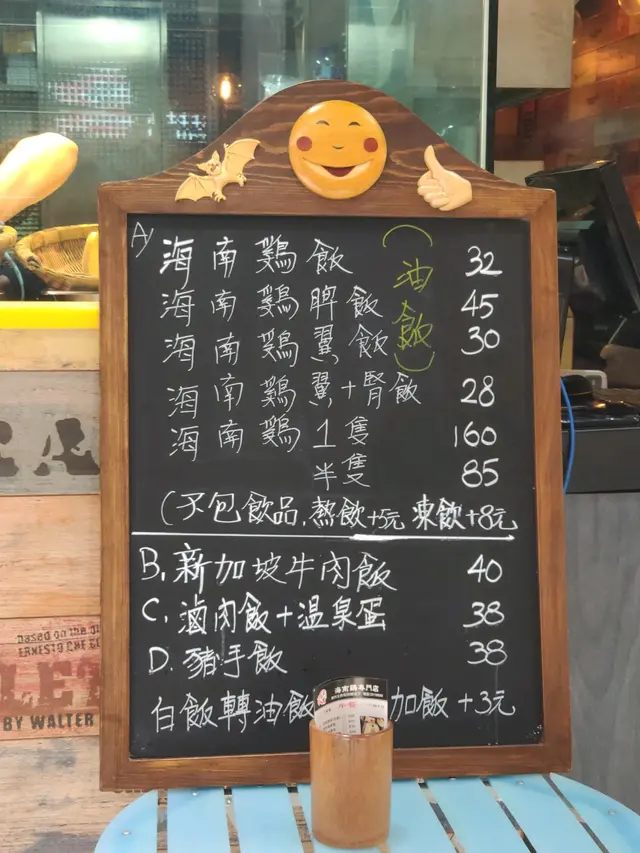 A)
海南鷄飯 (油飯) 32
海南鷄脾飯 45
海南鷄翼飯 30
海南鷄翼+腎飯 28
海南鷄1隻 160
半隻 85
(不包飲品,熱飲+5元 凍飲+8元
B. 新加坡牛肉飯 40
C. 滷肉飯+温泉蛋 38
D. 豬手飯 38
白飯轉油飯 加飯+3元
海南鷄專門店
based on the
ERNESTO CHE
BY WALTER